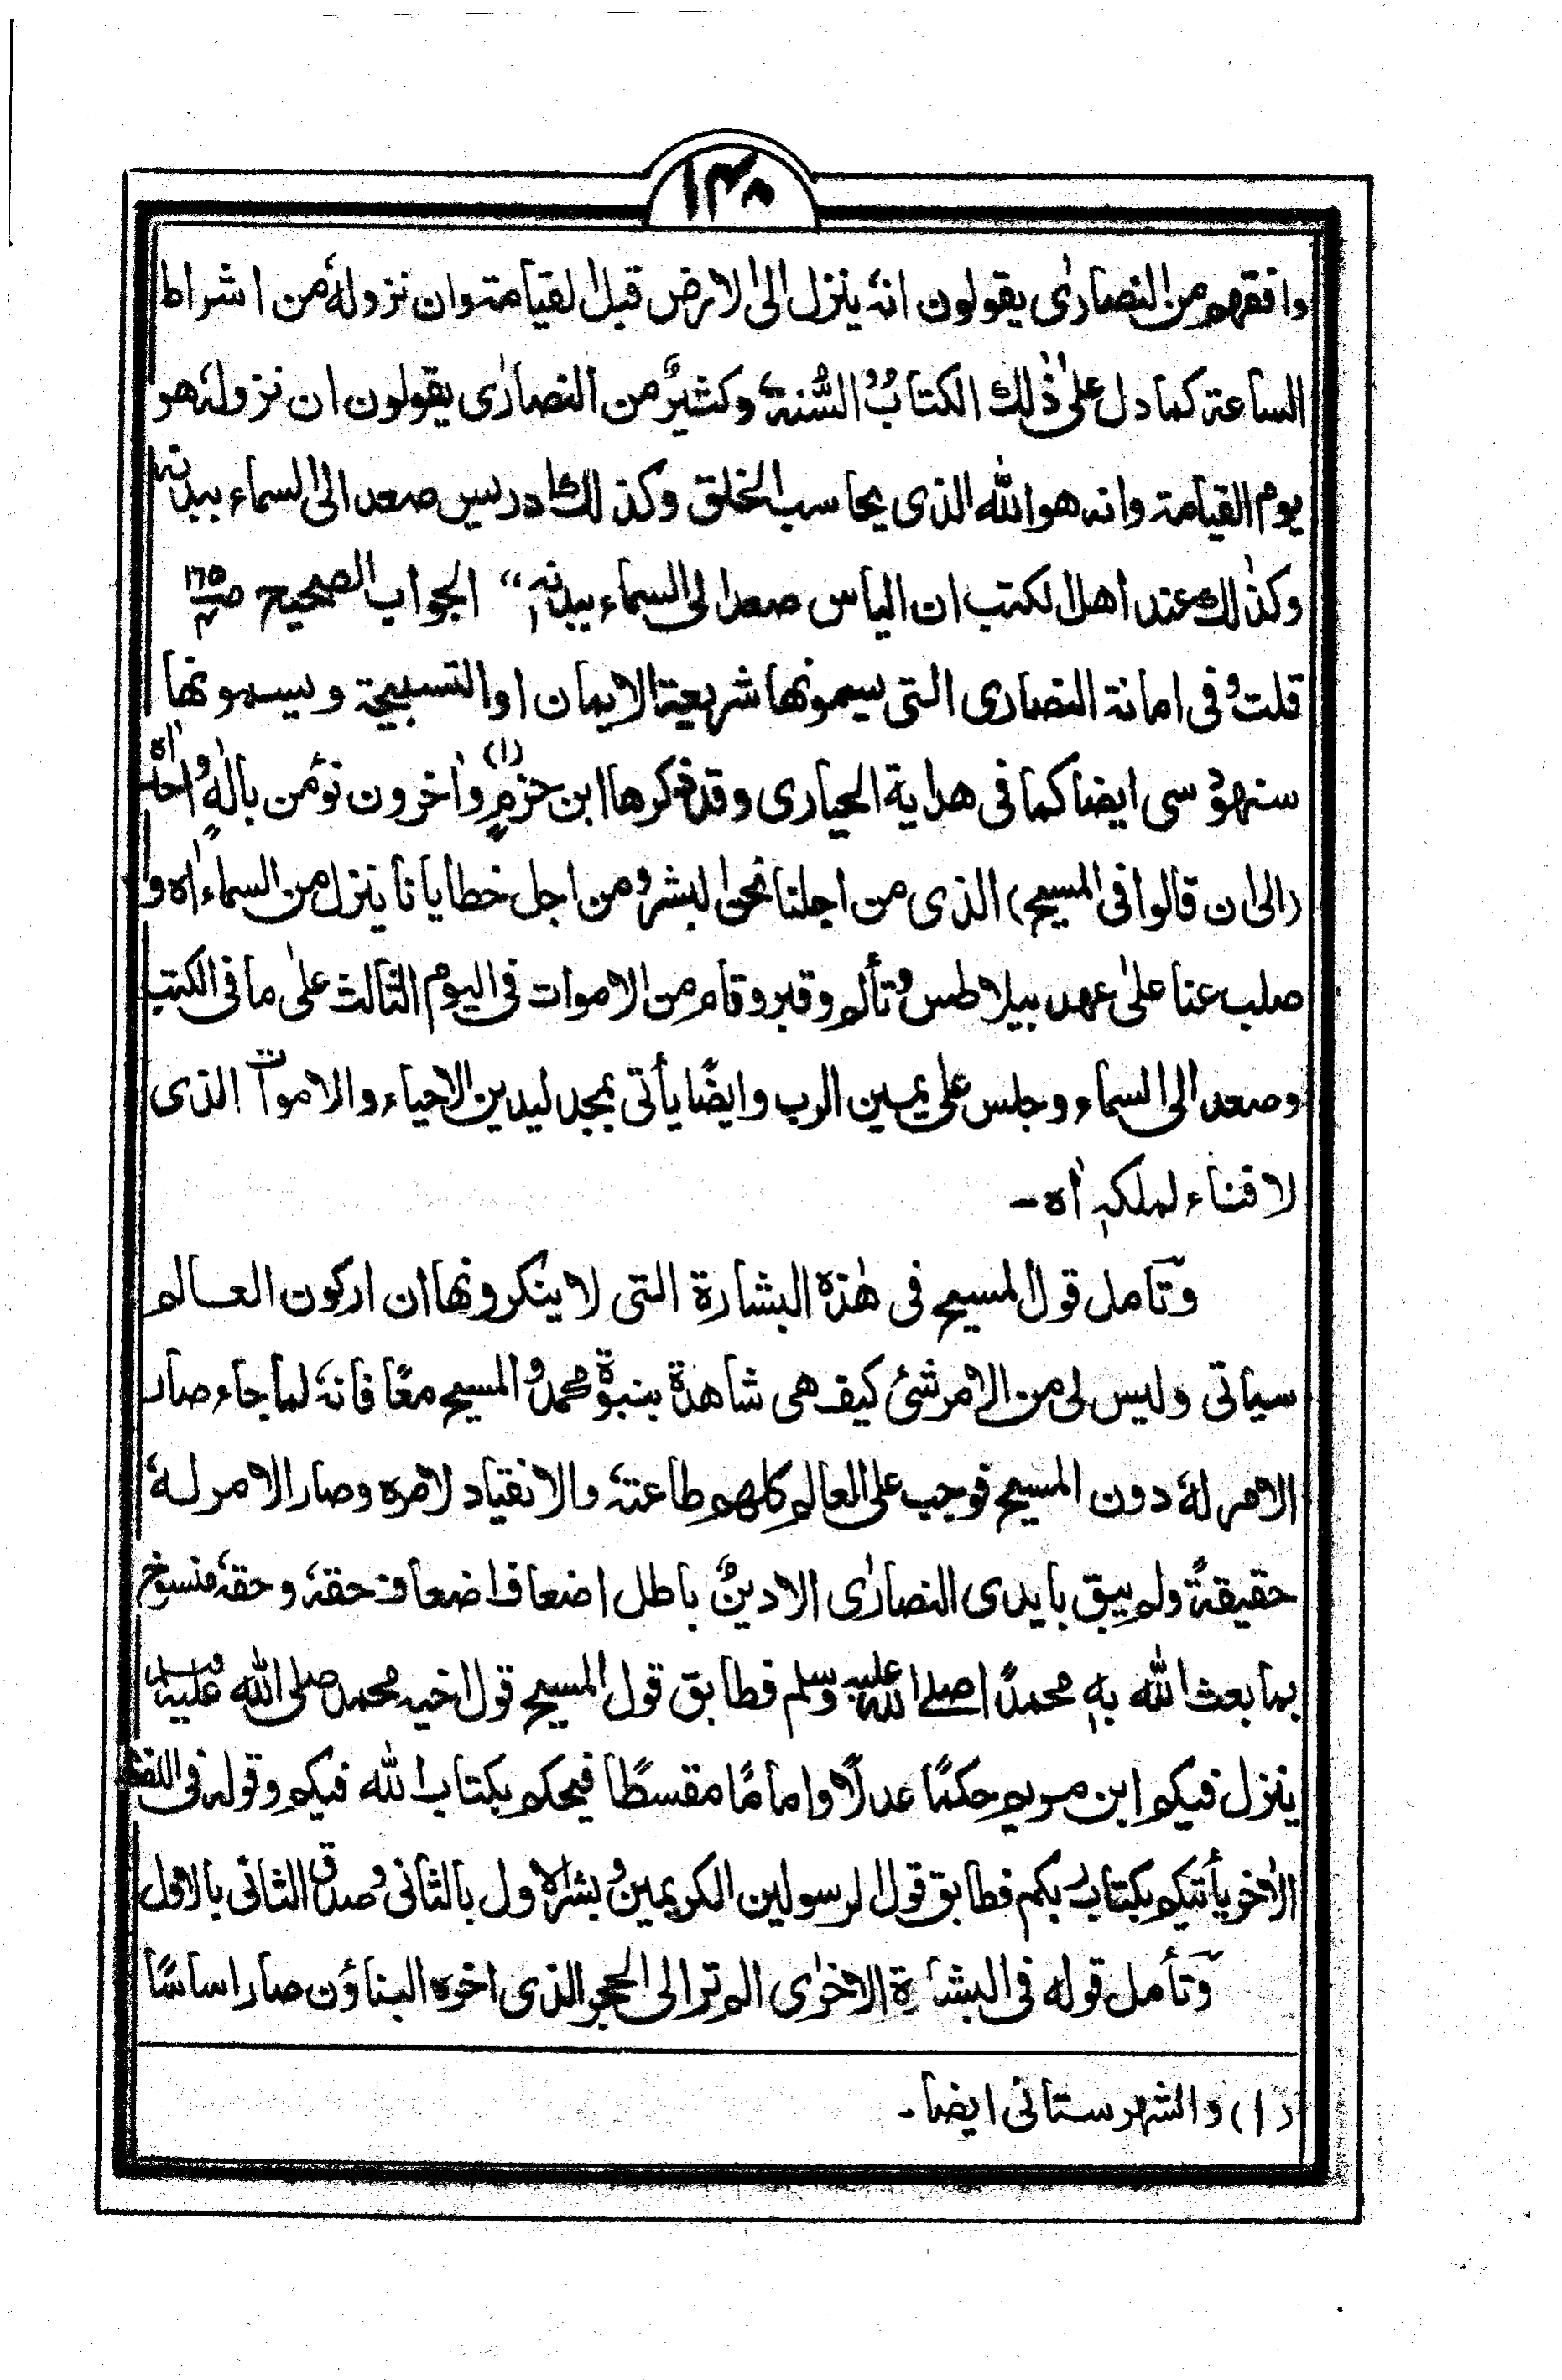 ۱۴۰
وافقهم من النصارٰى يقولون انهٗ ينزل الىٰ الارض قبل القيامة وان نزولهٗ من اشراط
الساعة كما دل علىٰ ذٰلك الكتابُ والسُّنة وكثيرٌ من النصارٰى يقولون ان نزولهٗ هو
يوم القيامة وانه هو الله الذى يحاسب الخلق وكذلك ادريس صعد الى السماء ببدنه
وكذٰلك عند اهل الكتب ان الياس صعد الى السماء ببدنه“ الجواب الصحيح ص۱۶۵
قلتُ وفى امانة النصارى التى يسمونها شريعة الايمان او التسبيحة ويسمونها
سنهودسى ايضا كما فى هداية الحيارى وقد ذكرها ابن حزمٍ (۱) واٰخرون نؤمن بالٰهٍ واحد اه
(الى ان قالوا فى المسيح) الذى من اجلنا نحن البشر ومن اجل خطايانا ينزل من السماء اه و
صلب عنا علىٰ عهد بيلاطس وتألم وقبر وقام من الاموات فى اليوم الثالث علىٰ ما فى الكتب
وصعد الى السماء وجلس على يمين الرب وايضًا يأتى بمجد ليدين الاحياء والاموات الذى
لا فناء لملكهٖ اه –
وتأمل قول المسيح فى هٰذه البشارة التى لا ينكرونها ان اركون العالم
سياتى وليس لى من الامر شئ كيف هى شاهدة بنبوة محمد والمسيح معًا فانهٗ لما جاء صار
الامر لهٗ دون المسيح فوجب على العالم كلهم طاعتهٗ والانقياد لامره وصار الامر لهٗ
حقيقةً ولم يبق بايدى النصارٰى الا دينٌ باطل اضعاف اضعاف حقهٗ وحقهٗ منسوخ
بما بعث الله بهٖ محمدًا صلى الله عليه وسلم فطابق قول المسيح قول اخيه محمد صلى الله عليه وسلم
ينزل فيكم ابن مريم حكمًا عدلًا وامامًا مقسطًا فيحكم بكتاب الله فيكم وقوله فى اللفظ
الاٰخر يأتيكم بكتاب ربكم فطابق قول الرسولين الكريمين وبشر الاول بالثانى وصدق الثانى بالاول
وتأمل قوله فى البشارة الاخرٰى الم تر الى الحجر الذى اخره البناؤن صار اساسًا
(۱) والشهرستانى ايضا۔